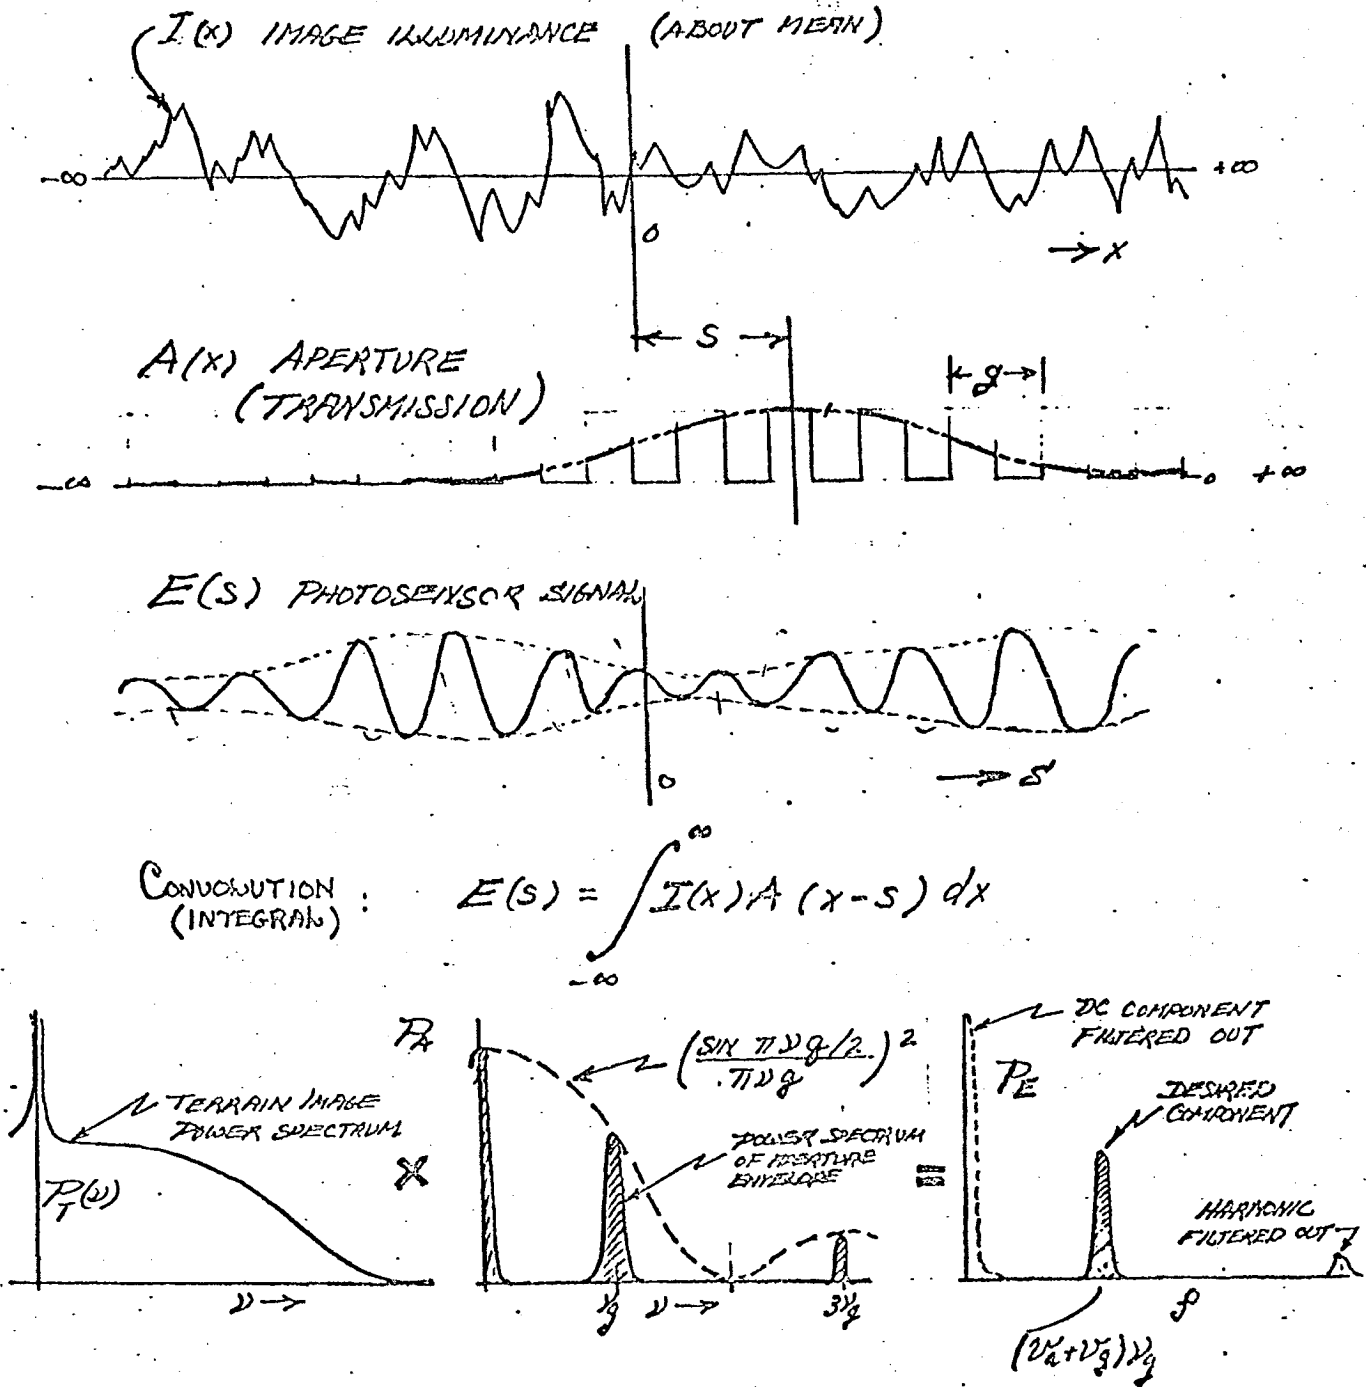 I(x) IMAGE ILLUMINANCE (ABOUT MEAN)
-∞
+∞
0
→ x
S
A(x) APERTURE
(TRANSMISSION)
g
-∞
0 +∞
E(s) PHOTOSENSOR SIGNAL
0
→ s
CONVOLUTION
(INTEGRAL) :
E(s) = ∫ I(x) A (x-s) dx
∞
-∞
TERRAIN IMAGE
POWER SPECTRUM
P_T(ν)
ν →
×
P_A
(SIN πνg/2 / πνg)²
POWER SPECTRUM
OF APERTURE
ENVELOPE
ν_g ν → 3ν_g
=
DC COMPONENT
FILTERED OUT
P_E
DESIRED
COMPONENT
HARMONIC
FILTERED OUT
f
(v_a+v_g)ν_g